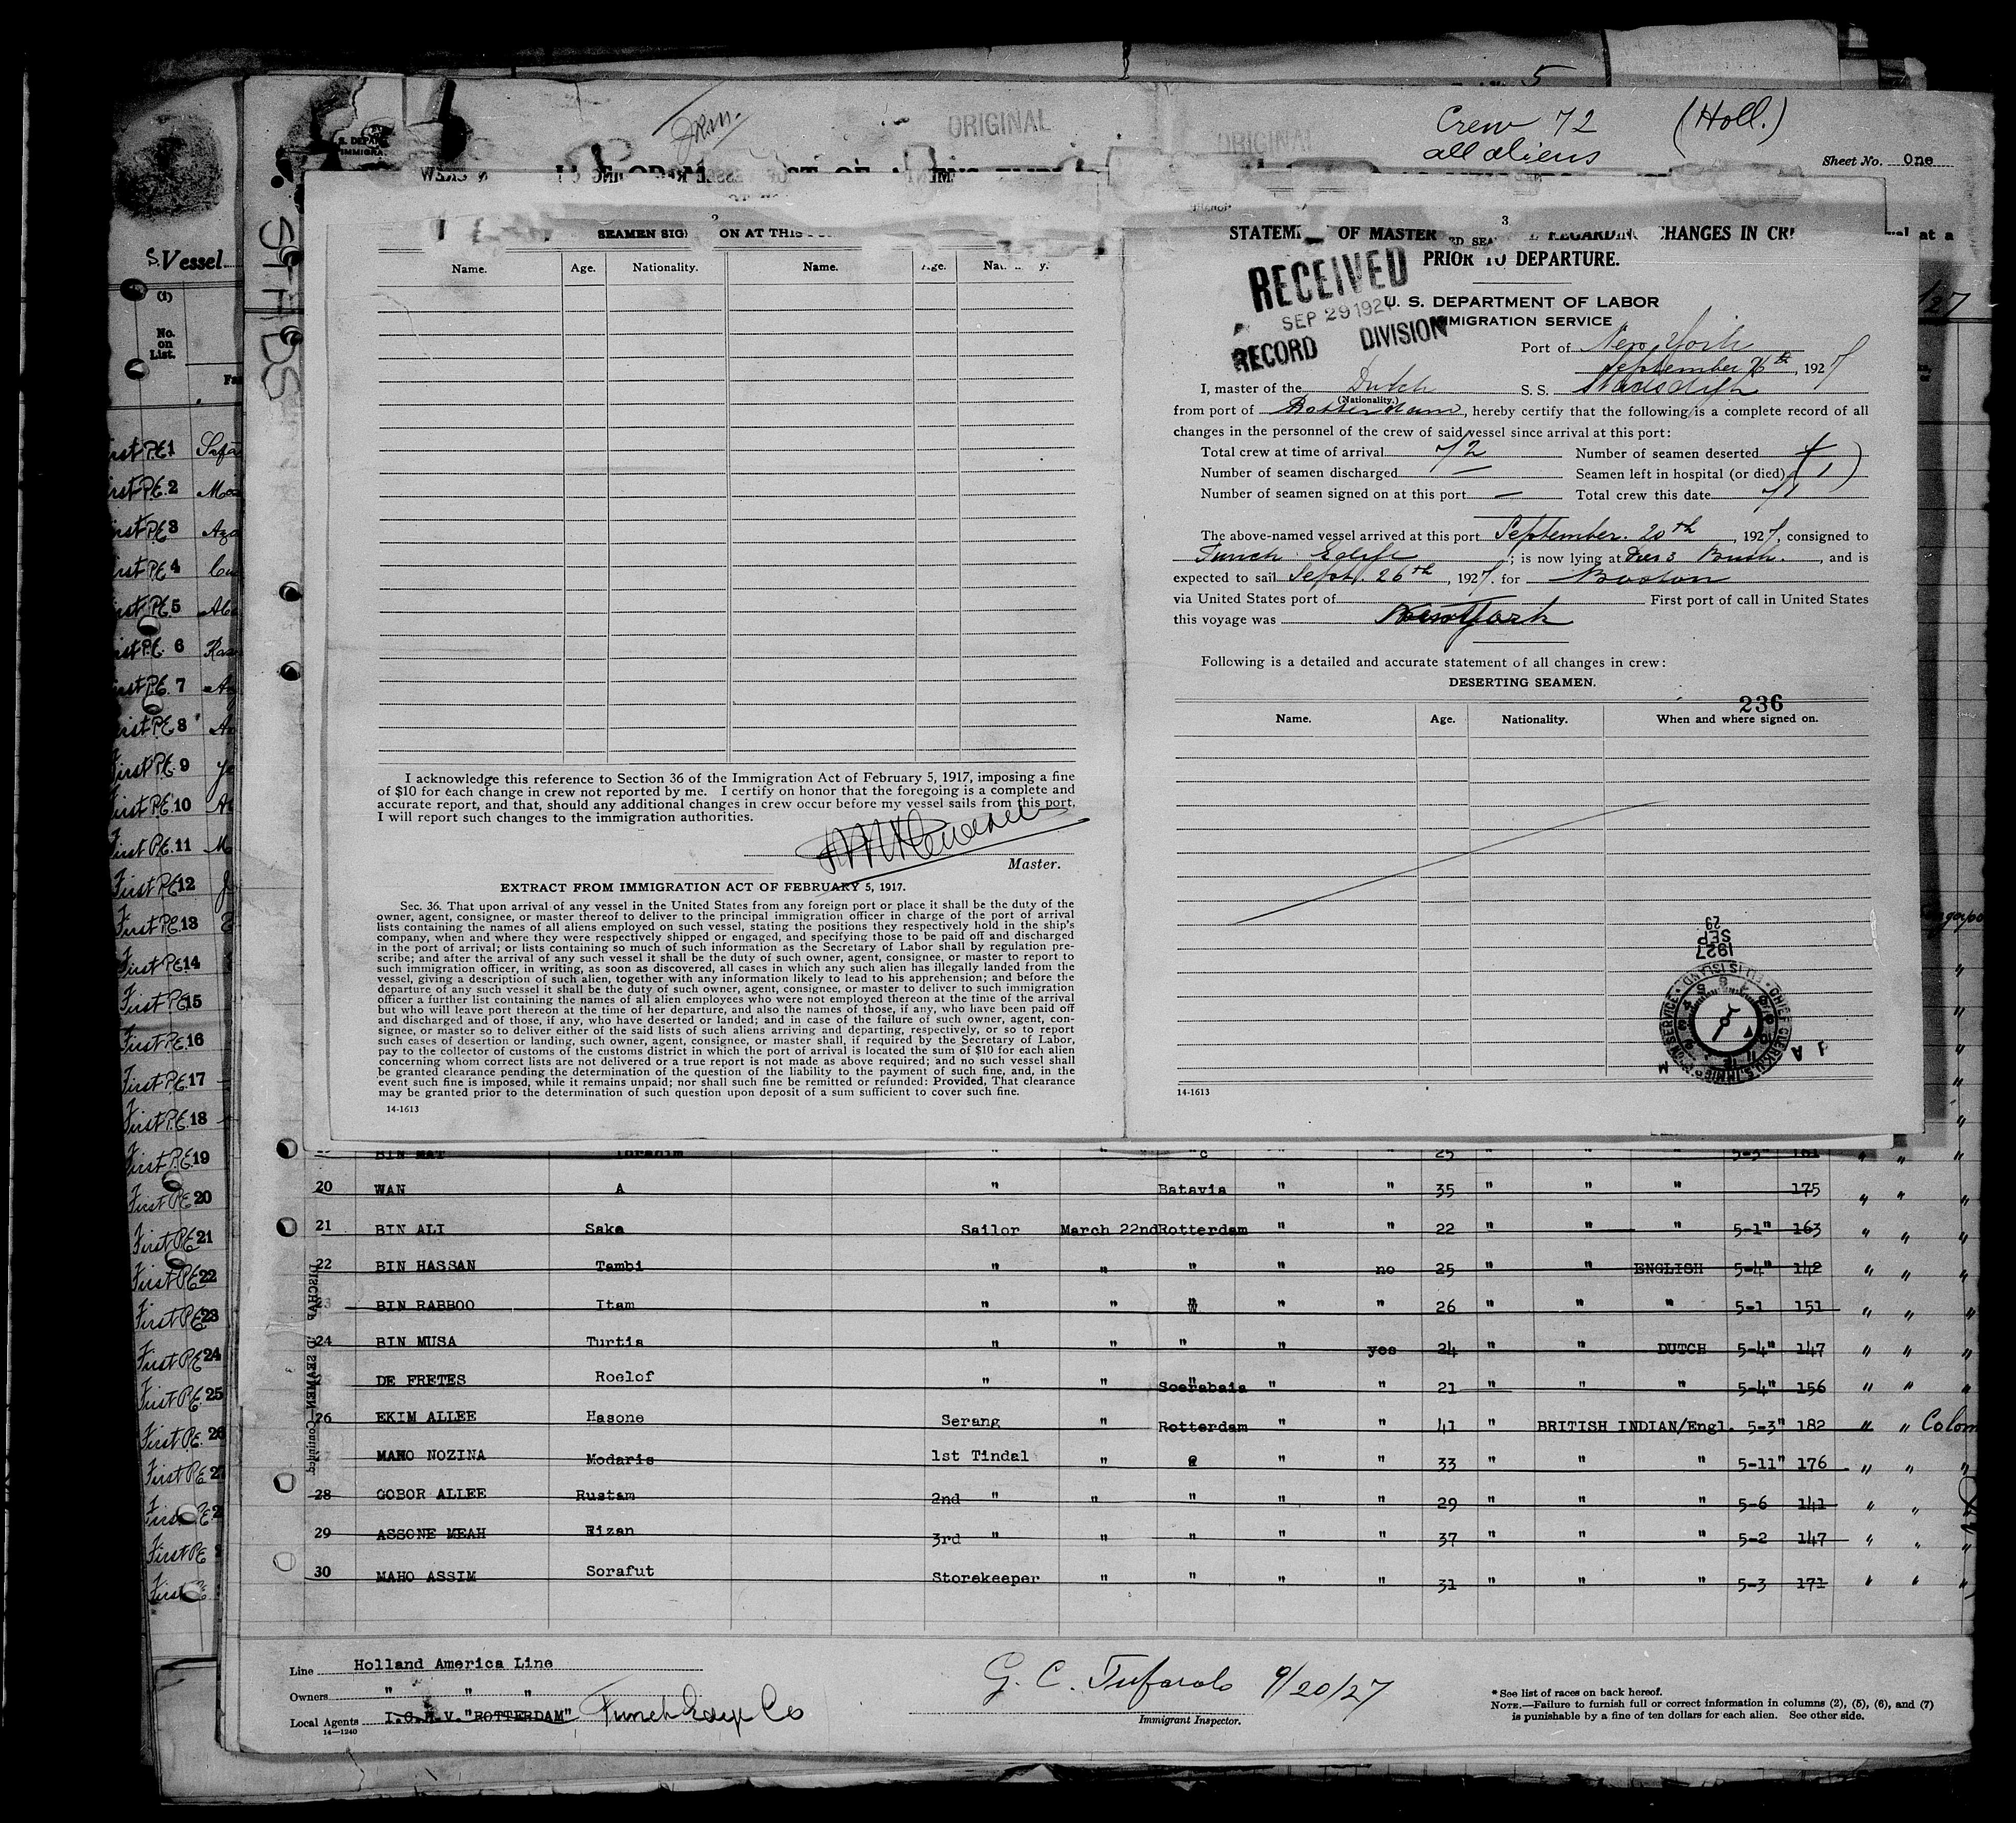 5
Crew 72 (Holl.)
all aliens
ORIGINAL
ORIGINAL
Sheet No. One
S. Vessel
(1)
No.
on
List.
2
SEAMEN SIG ON AT THIS
Name. Age. Nationality. Name. Age. Na y.
I acknowledge this reference to Section 36 of the Immigration Act of February 5, 1917, imposing a fine
of $10 for each change in crew not reported by me. I certify on honor that the foregoing is a complete and
accurate report, and that, should any additional changes in crew occur before my vessel sails from this port,
I will report such changes to the immigration authorities.
Master.
EXTRACT FROM IMMIGRATION ACT OF FEBRUARY 5, 1917.
Sec. 36. That upon arrival of any vessel in the United States from any foreign port or place it shall be the duty of the
owner, agent, consignee, or master thereof to deliver to the principal immigration officer in charge of the port of arrival
lists containing the names of all aliens employed on such vessel, stating the positions they respectively hold in the ship's
company, when and where they were respectively shipped or engaged, and specifying those to be paid off and discharged
in the port of arrival; or lists containing so much of such information as the Secretary of Labor shall by regulation pre-
scribe; and after the arrival of any such vessel it shall be the duty of such owner, agent, consignee, or master to report to
such immigration officer, in writing, as soon as discovered, all cases in which any such alien has illegally landed from the
vessel, giving a description of such alien, together with any information likely to lead to his apprehension; and before the
departure of any such vessel it shall be the duty of such owner, agent, consignee, or master to deliver to such immigration
officer a further list containing the names of all alien employees who were not employed thereon at the time of the arrival
but who will leave port thereon at the time of her departure, and also the names of those, if any, who have been paid off
and discharged and of those, if any, who have deserted or landed; and in case of the failure of such owner, agent, con-
signee, or master so to deliver either of the said lists of such aliens arriving and departing, respectively, or so to report
such cases of desertion or landing, such owner, agent, consignee, or master shall, if required by the Secretary of Labor,
pay to the collector of customs of the customs district in which the port of arrival is located the sum of $10 for each alien
concerning whom correct lists are not delivered or a true report is not made as above required; and no such vessel shall
be granted clearance pending the determination of the question of the liability to the payment of such fine, and, in the
event such fine is imposed, while it remains unpaid; nor shall such fine be remitted or refunded: Provided, That clearance
may be granted prior to the determination of such question upon deposit of a sum sufficient to cover such fine.
14-1613
3
STATEM OF MASTER REGARDING CHANGES IN CR
PRIOR TO DEPARTURE.
RECEIVED
SEP 29 1927
RECORD DIVISION
U. S. DEPARTMENT OF LABOR
IMMIGRATION SERVICE
Port of New York
September 26th, 1927
I, master of the Dutch S. S.
(Nationality.)
from port of Rotterdam, hereby certify that the following is a complete record of all
changes in the personnel of the crew of said vessel since arrival at this port:
Total crew at time of arrival 72 Number of seamen deserted
Number of seamen discharged — Seamen left in hospital (or died) (1)
Number of seamen signed on at this port — Total crew this date 71
The above-named vessel arrived at this port September 20th, 1927, consigned to
Funch Edye; is now lying at Pier 3 Bush., and is
expected to sail Sept. 26th, 1927. for Boston
via United States port of First port of call in United States
this voyage was New York
Following is a detailed and accurate statement of all changes in crew:
DESERTING SEAMEN.
236
Name. Age. Nationality. When and where signed on.
1927
SEP
29
CHIEF CLERK U.S. IMMIGRATION SERVICE ELLIS ISLAND
14-1613
First P.E. 1
First P.E. 2
First P.E. 3
First P.E. 4
First P.E. 5
First P.E. 6
First P.E. 7
First P.E. 8
First P.E. 9
First P.E. 10
First P.E. 11
First P.E. 12
First P.E. 13
First P.E. 14
First P.E. 15
First P.E. 16
First P.E. 17
First P.E. 18
First P.E. 19
First P.E. 20
First P.E. 21
First P.E. 22
First P.E. 23
First P.E. 24
First P.E. 25
First P.E. 26
BIN MAT Ibrahim " " " " 25 " " " 5-3" 161 " " "
20 WAN A " Batavia " " 35 " " " 175 " " "
21 BIN ALI Saka Sailor March 22nd Rotterdam " " 22 " " " 5-1" 163 " " "
22 BIN HASSAN Tambi " " " " no 25 " " ENGLISH 5-4" 142 " " "
23 BIN RABBOO Itam " " " " " 26 " " " 5-1 151 " " "
24 BIN MUSA Turtis " " " " yes 24 " " DUTCH 5-4" 147 " " "
DE FRETES Roelof " " Soerabaia " " 21 " " " 5-4" 156 " " "
26 EKIM ALLEE Hasone Serang " Rotterdam " " 41 " BRITISH INDIAN/Engl. 5-3" 182 " " Colom
MAHO NOZINA Modaris 1st Tindal " " " " 33 " " " 5-11" 176 " " "
28 GOBOR ALLEE Rustam 2nd " " " " " 29 " " " 5-6 141 " "
29 ASSONE MEAH Rizan 3rd " " " " " 37 " " " 5-2 147 " " "
30 MAHO ASSIM Sorafut Storekeeper " " " " 31 " " " 5-3 171 " " "
Line Holland America Line
Owners " " "
Local Agents "ROTTERDAM" Funch Edye Co
14—1240
G. C. Tufarolo 9/20/27
Immigrant Inspector.
* See list of races on back hereof.
NOTE.—Failure to furnish full or correct information in columns (2), (5), (6), and (7)
is punishable by a fine of ten dollars for each alien. See other side.